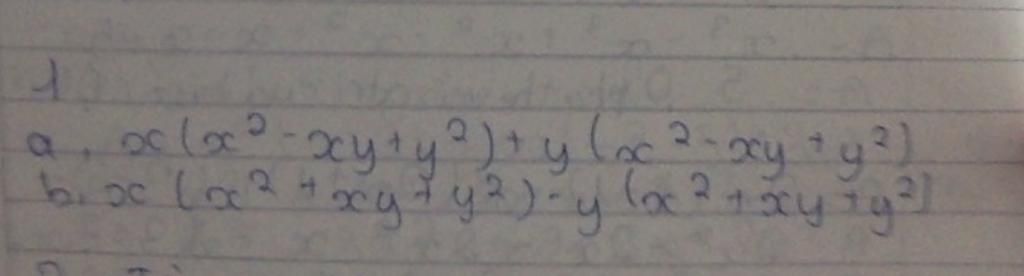 1
a, x(x² - xy + y²) + y(x² - xy + y²)
b, x(x² + xy + y²) - y(x² + xy + y²)